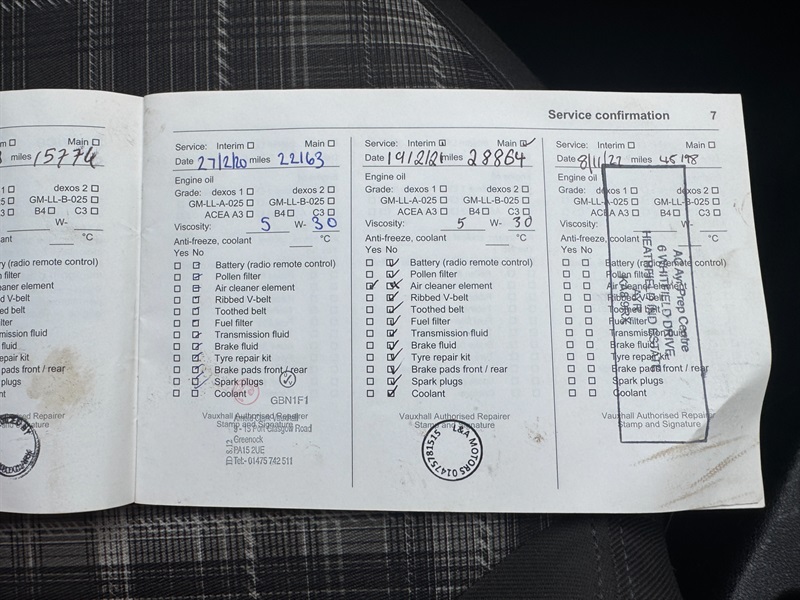 Service confirmation 7
Main
miles 15774
dexos 2
GM-LL-B-025
B4 C3
W-
°C
(radio remote control)
filter
eaner element
d V-belt
ed belt
filter
mission fluid
fluid
epair kit
pads front / rear
plugs
Repairer
Service: Interim Main
Date 27/2/20 miles 22163
Engine oil
Grade: dexos 1 dexos 2
GM-LL-A-025 GM-LL-B-025
ACEA A3 B4 C3
Viscosity: 5 W- 30
Anti-freeze, coolant °C
Yes No
Battery (radio remote control)
Pollen filter
Air cleaner element
Ribbed V-belt
Toothed belt
Fuel filter
Transmission fluid
Brake fluid
Tyre repair kit
Brake pads front / rear
Spark plugs
Coolant
GBN1F1
Vauxhall Authorised Repairer
Stamp and Signature
9 - 15 Port Glasgow Road
Greenock
PA15 2UE
Tel:- 01475 742 511
Service: Interim Main
Date 19/2/21 miles 28864
Engine oil
Grade: dexos 1 dexos 2
GM-LL-A-025 GM-LL-B-025
ACEA A3 B4 C3
Viscosity: 5 W- 30
Anti-freeze, coolant °C
Yes No
Battery (radio remote control)
Pollen filter
Air cleaner element
Ribbed V-belt
Toothed belt
Fuel filter
Transmission fluid
Brake fluid
Tyre repair kit
Brake pads front / rear
Spark plugs
Coolant
Vauxhall Authorised Repairer
Stamp and Signature
L&A MOTORS 01475781515
Service: Interim Main
Date 8/11/22 miles 45198
Engine oil
Grade: dexos 1 dexos 2
GM-LL-A-025 GM-LL-B-025
ACEA A3 B4 C3
Viscosity: W-
Anti-freeze, coolant °C
Yes No
Battery (radio remote control)
Pollen filter
Air cleaner element
Ribbed V-belt
Toothed belt
Fuel filter
Transmission fluid
Brake fluid
Tyre repair kit
Brake pads front / rear
Spark plugs
Coolant
Vauxhall Authorised Repairer
Stamp and Signature
Prep Centre
6 WHITFIELD DRIVE
HEATHFIELD IND ESTATE
AYR